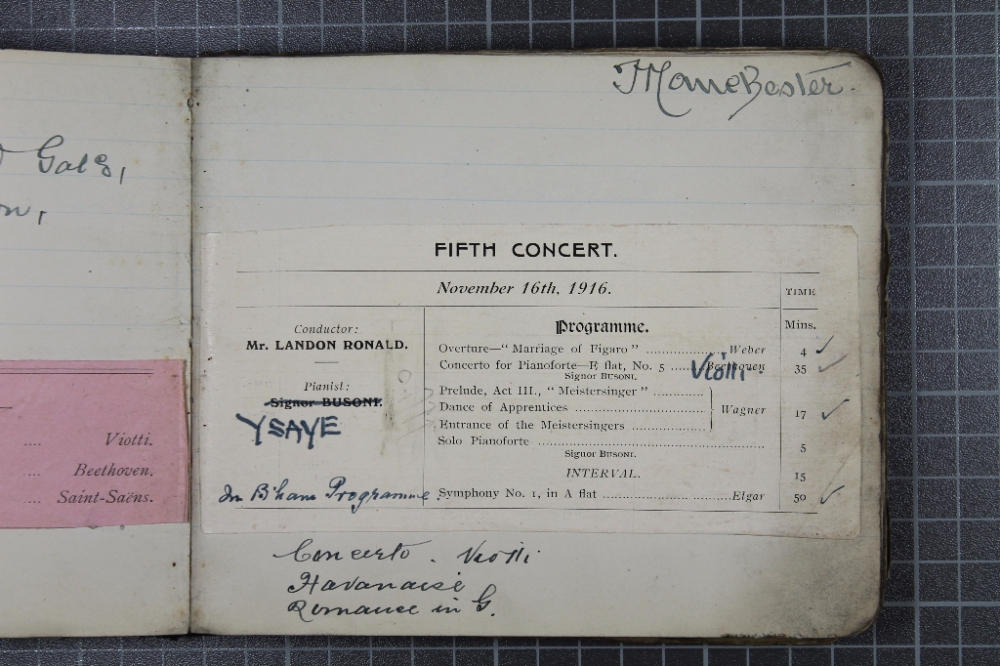 Gals,
Viotti.
Beethoven.
Saint-Saëns.
Manchester.
FIFTH CONCERT.
November 16th, 1916.
TIME
Conductor:
Mr. LANDON RONALD.
Pianist:
Signor BUSONI.
YSAYE
In B'ham Programme
Programme. Mins.
Overture—"Marriage of Figaro" .................. Weber 4 ✓
Concerto for Pianoforte—E flat, No. 5 ......... Beethoven 35 ✓
Viotti.
Signor Busoni.
Prelude, Act III., "Meistersinger" ............
Dance of Apprentices .............................. Wagner 17 ✓
Entrance of the Meistersingers ..................
Solo Pianoforte .................................... 5
Signor Busoni.
INTERVAL. 15
Symphony No. 1, in A flat ........................ Elgar 50 ✓
Concerto. Viotti
Havanaise
Romance in G.